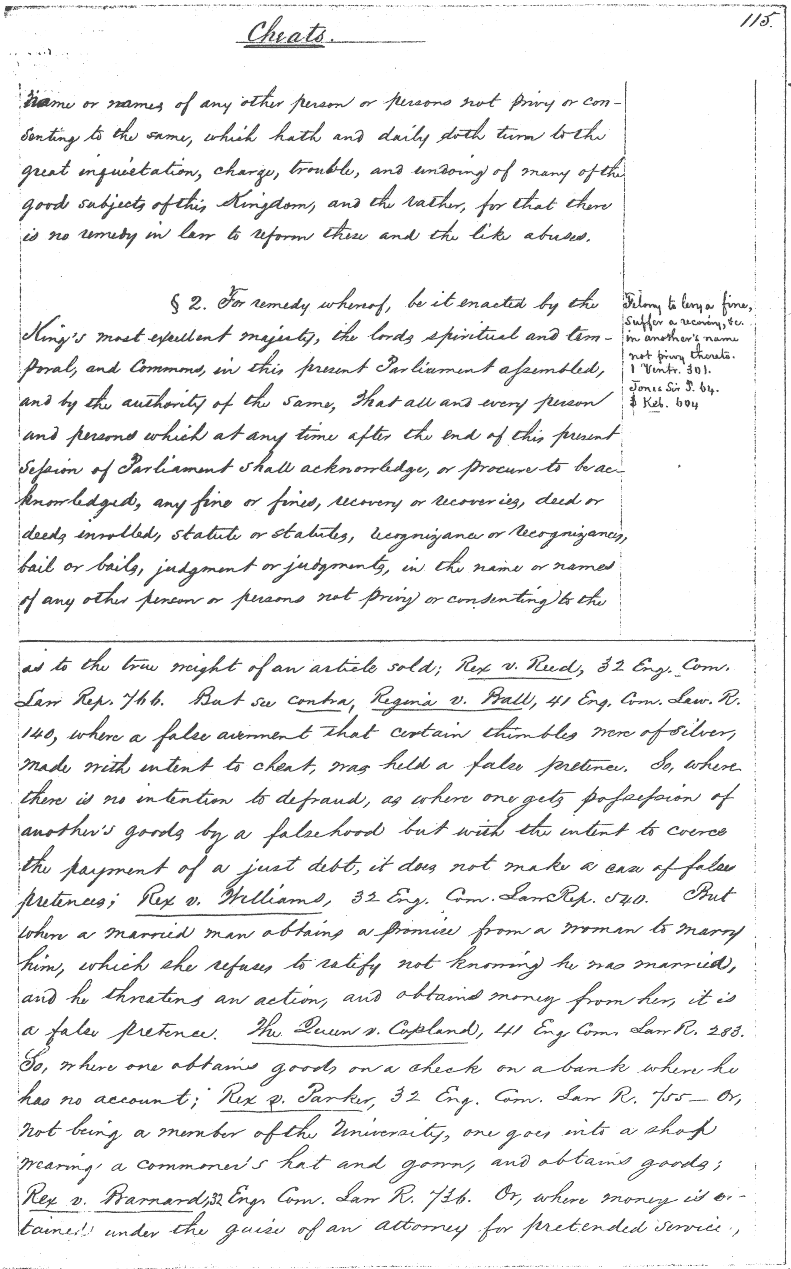 115.
Cheats.
name or names of any other person or persons not privy or con-
senting to the same, which hath and daily doth turn to the
great inquietation, charge, trouble, and undoing of many of the
good subjects of this Kingdom, and the rather, for that there
is no remedy in law to reform these and the like abuses.
§ 2. For remedy whereof, be it enacted by the
King's most excellent majesty, the lords spiritual and tem-
poral, and Commons, in this present Parliament assembled,
and by the authority of the same, That all and every person
and persons which at any time after the end of this present
Session of Parliament shall acknowledge, or procure to be ac-
knowledged, any fine or fines, recovery or recoveries, deed or
deeds inrolled, statute or statutes, recognizance or recognizances,
bail or bails, judgment or judgments, in the name or names
of any other person or persons not privy or consenting to the
Felony to levy a fine,
suffer a recovery, &c.
in another's name
not privy thereto.
1 Ventr. 301.
Jones Sir T. 64.
3 Keb. 694
as to the true weight of an article sold; Rex v. Reed, 32 Eng. Com.
Law Rep. 766. But see contra, Regina v. Ball, 41 Eng. Com. Law. R.
140, where a false averment that certain thimbles were of silver,
made with intent to cheat, was held a false pretence. So, where
there is no intention to defraud, as where one gets possession of
another's goods by a falsehood but with the intent to coerce
the payment of a just debt, it does not make a case of false
pretences; Rex v. Williams, 32 Eng. Com. Law Rep. 540. But
where a married man obtains a promise from a woman to marry
him, which she refuses to ratify not knowing he was married,
and he threatens an action, and obtains money from her, it is
a false pretence. The Queen v. Copland, 41 Eng. Com. Law R. 283.
So, where one obtains goods on a check on a bank where he
has no account; Rex v. Parker, 32 Eng. Com. Law R. 755— Or,
not being a member of the University, one goes into a shop
wearing a commoner's hat and gown, and obtains goods;
Rex v. Barnard, 32 Eng. Com. Law R. 736. Or, where money is ob-
tained under the guise of an attorney for pretended service,